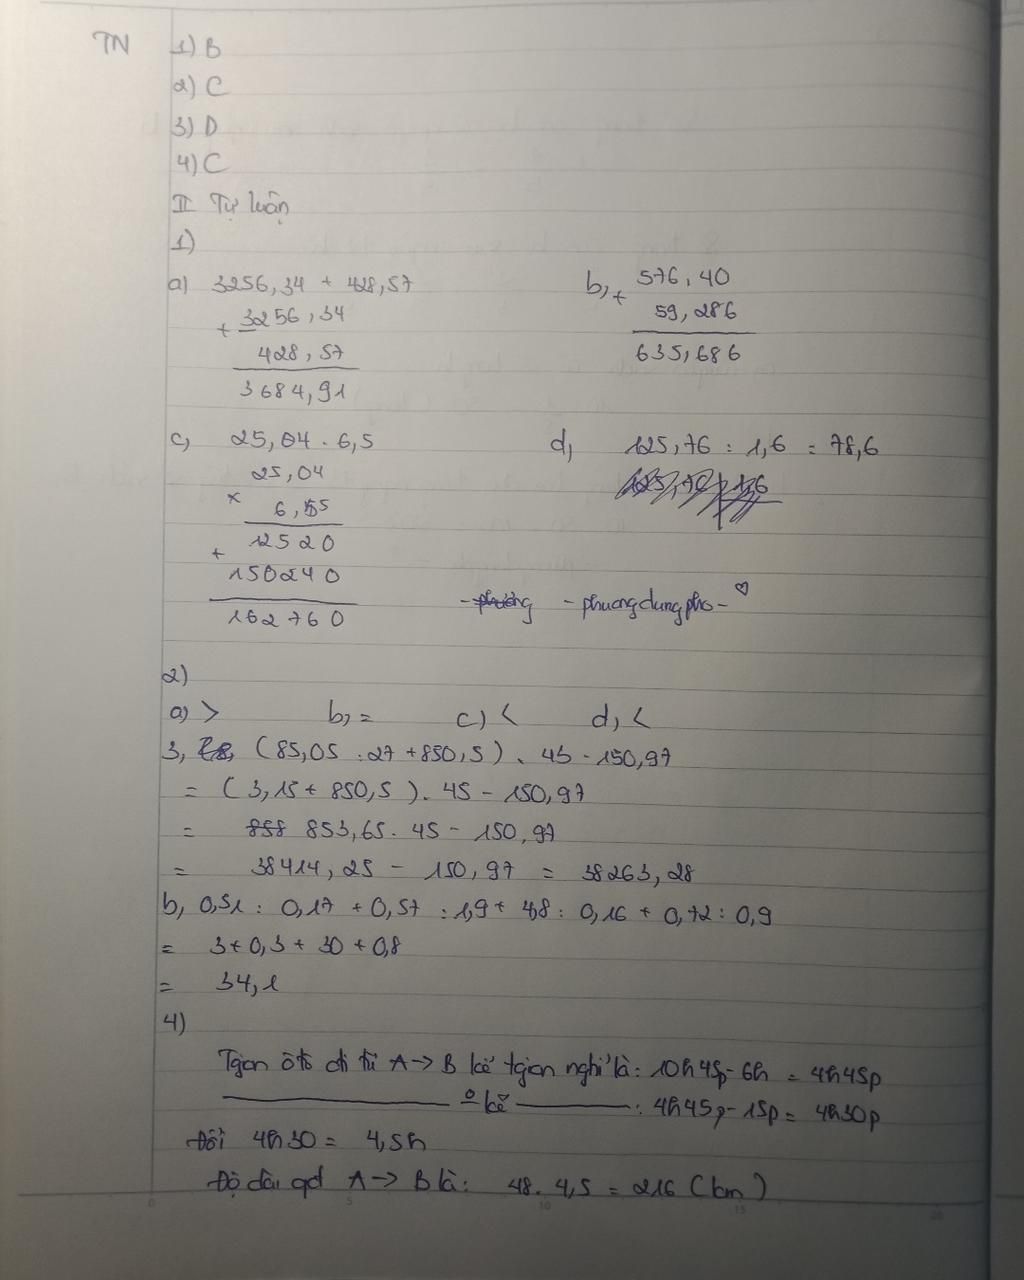 TN 1) B
2) C
3) D
4) C
II Tự luận
1)
a) 3256,34 + 428,57
+ 3256,34
428,57
3684,91
b, + 576,40
59,286
635,686
c, 25,04 . 6,5
25,04
× 6,5
12520
+ 150240
162760
d, 125,76 : 1,6 = 78,6
- phuongdungpho - ♡
2)
a) > b, = c) < d, <
3, (85,05 : 27 + 850,5) . 45 - 150,97
= (3,15 + 850,5) . 45 - 150,97
= 853,65 . 45 - 150,97
= 38414,25 - 150,97 = 38263,28
b, 0,51 : 0,17 + 0,57 : 1,9 + 4,8 : 0,16 + 0,72 : 0,9
= 3 + 0,3 + 30 + 0,8
= 34,1
4)
Tgian ôtô đi từ A → B kể tgian nghỉ là: 10h45p - 6h = 4h45p
o kể : 4h45p - 15p = 4h30p
Đổi 4h30 = 4,5h
Độ dài qđ A → B là: 48 . 4,5 = 216 (km)